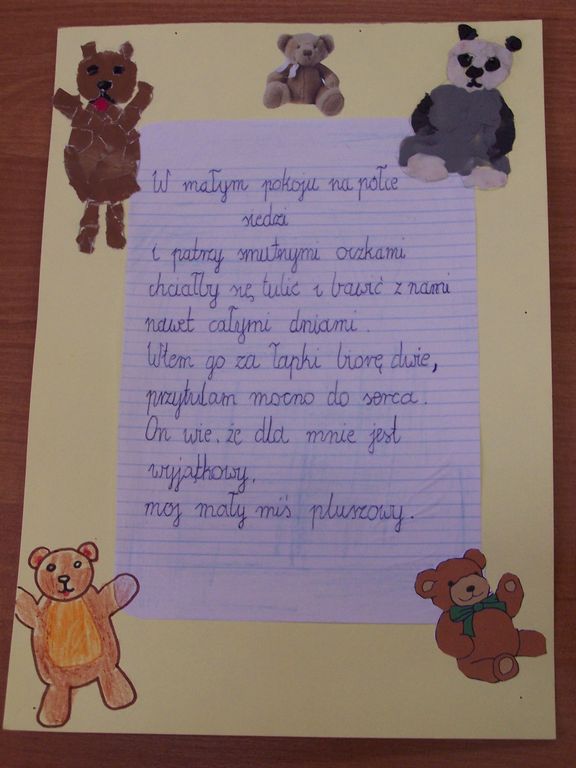 W małym pokoju na półce
siedzi
i patrzy smutnymi oczkami
chciałby się tulić i bawić z nami
nawet całymi dniami.
Wtem go za łapki biorę dwie,
przytulam mocno do serca.
On wie, że dla mnie jest
wyjątkowy,
moj mały miś pluszowy.